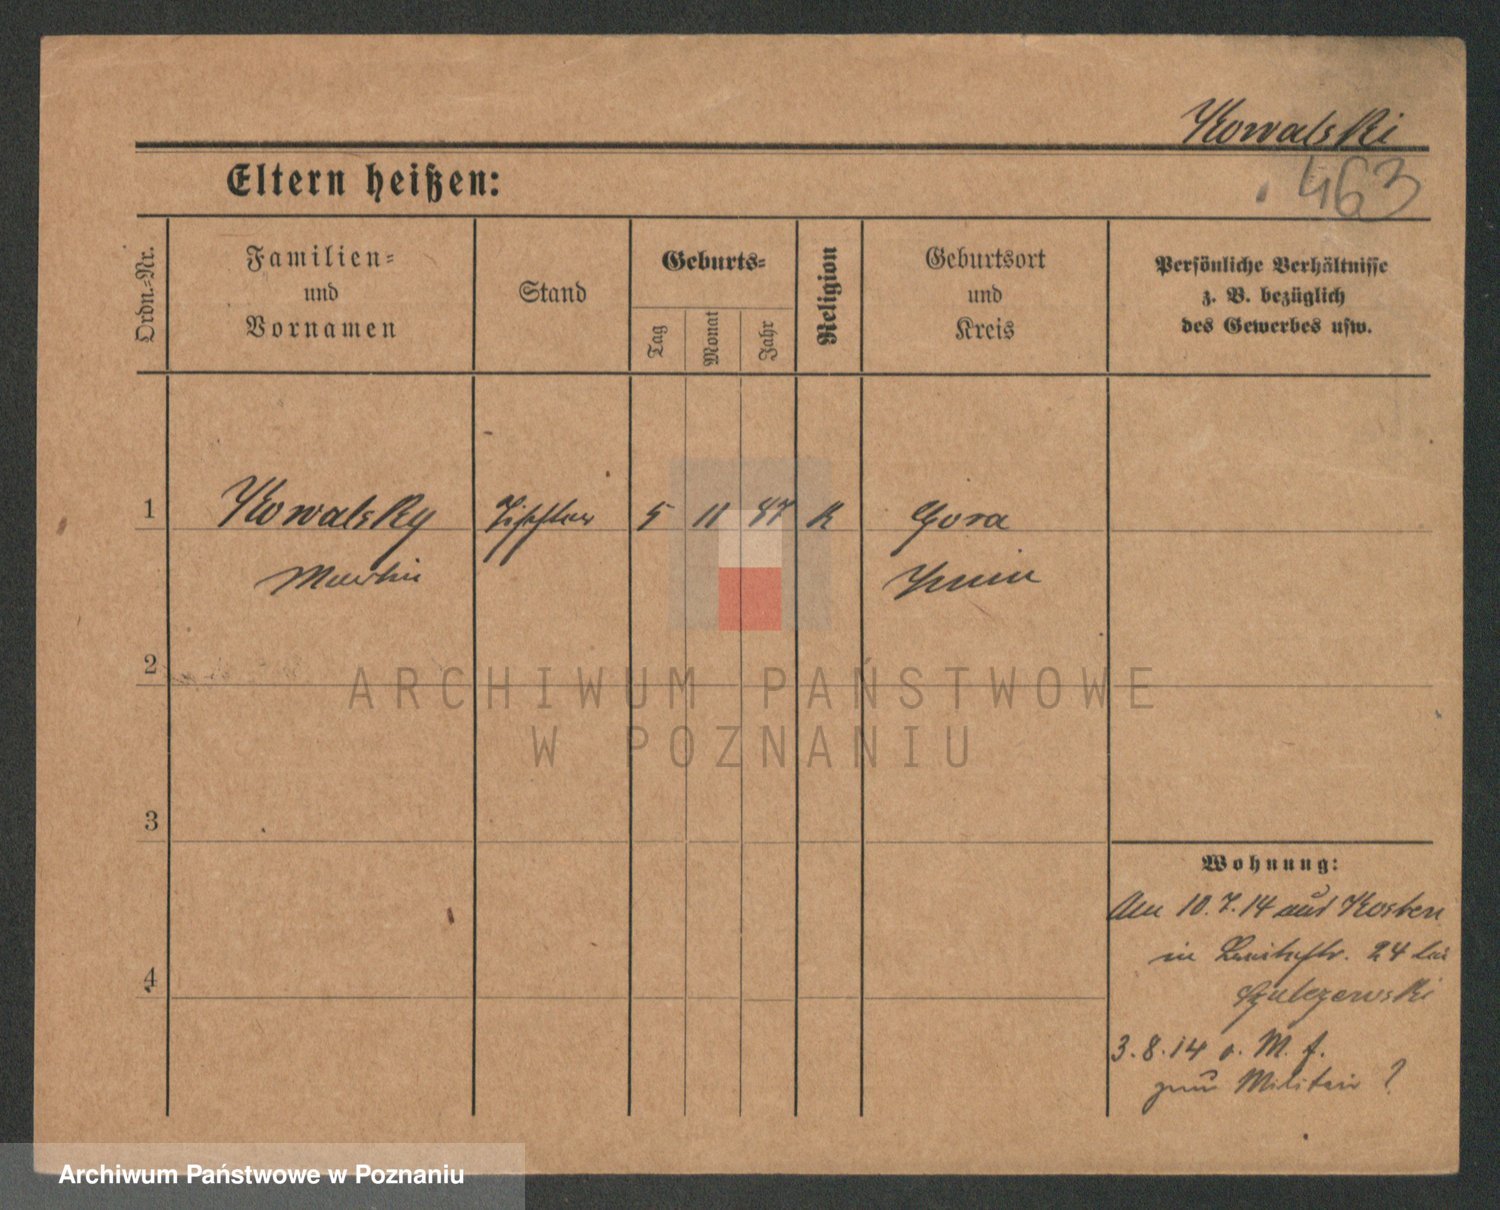 Kowalski
463
Eltern heißen:
Ordn.-Nr.
Familien-
und
Vornamen
Stand
Geburts-
Tag
Monat
Jahr
Religion
Geburtsort
und
Kreis
Persönliche Verhältnisse
z. B. bezüglich
des Gewerbes usw.
1 Kowalsky Tischler 5 11 87 K Gora
Martin Znin
2
ARCHIWUM PAŃSTWOWE
W POZNANIU
3
Wohnung:
Am 10.7.14 aus Kosten
in 24 bei
Szulczewski
4
3.8.14 o. M. f.
zum Militair ?
Archiwum Państwowe w Poznaniu